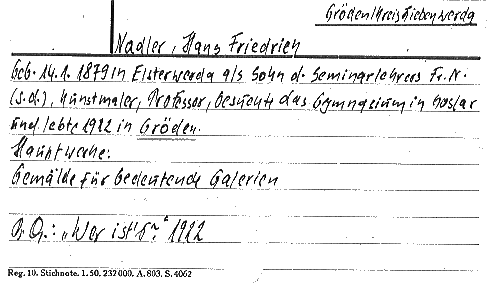 Gröden/Kreis Liebenwerda
Nadler, Hans Friedrich
Geb. 14.1.1879 in Elsterwerda als Sohn d. Seminarlehrers Fr. N.
(s.d.), Kunstmaler, Professor, besuchte das Gymnasium in Goslar
und lebte 1922 in Gröden.
Hauptwerke:
Gemälde für bedeutende Galerien
B. Q.: „Wer ist's?" 1922
Reg. 10. Stichnote. 1. 50. 232000. A. 803. S. 4062